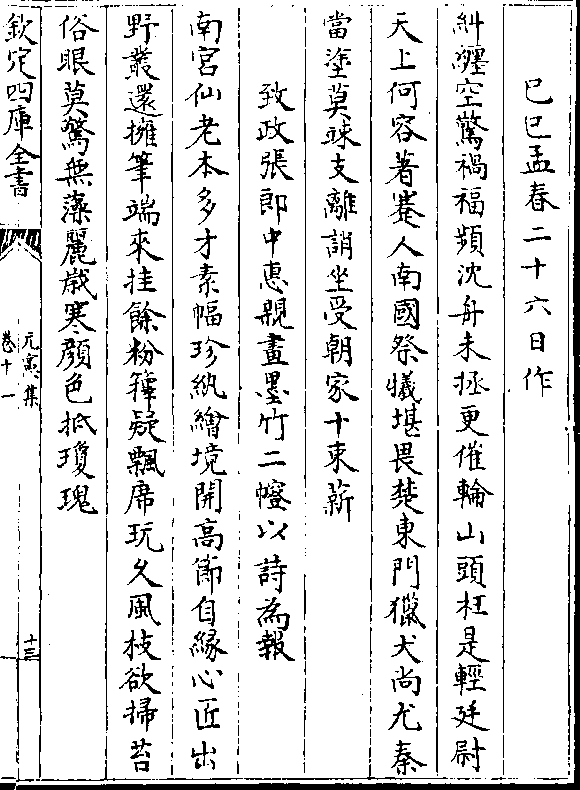 己巳孟春二十六日作
糾纒空驚禍福頻沈舟未拯更催輪山頭枉是輕廷尉
天上何容著蹇人南國祭犧堪畏楚東門獵犬尚尤秦
當塗莫竦支離誚坐受朝家十束薪
致政張郎中惠親畫墨竹二㡧以詩為報
南宮仙老本多才素幅珍紈繪境開高節自緣心匠出
野叢還擁筆端來挂餘粉籜疑飄席玩久風枝欲掃苔
俗眼莫驚無藻麗歲寒顔色抵瓊瑰
欽定四庫全書
元憲集
卷十一
十三